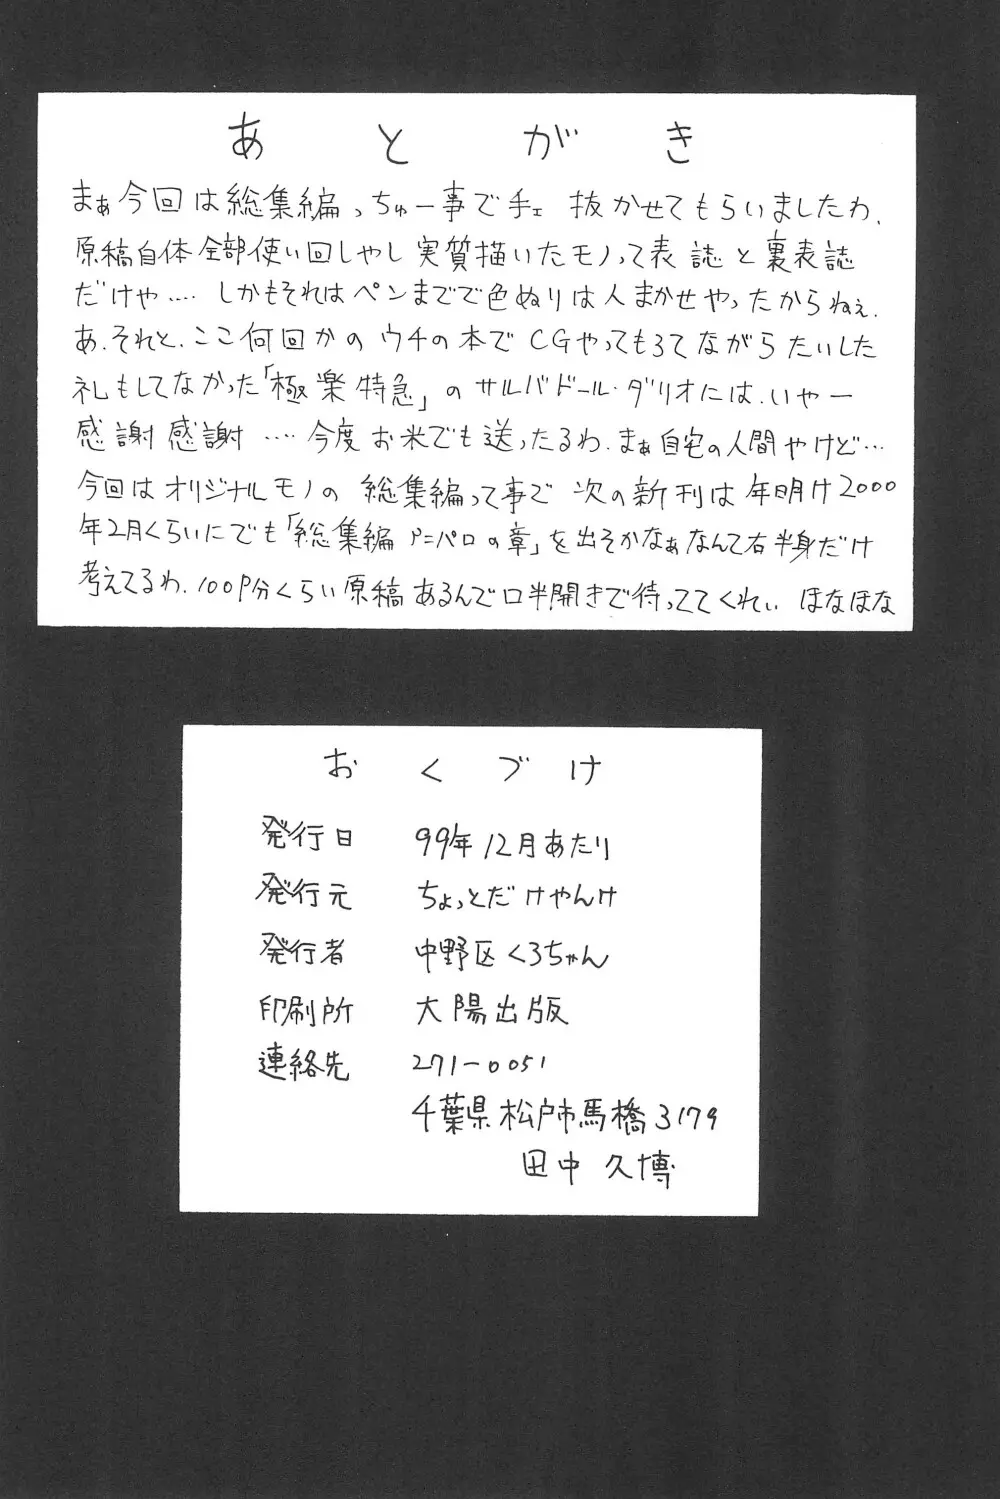 あとがき
まぁ今回は総集編っちゅー事で手ェ 抜かせてもらいましたわ.
原稿自体全部使い回しやし実質描いたモノって表誌と裏表誌
だけや‥‥ しかもそれはペンまでで色ぬりは人まかせやったからねぇ.
あ.それと.ここ何回かのウチの本でCGやってもろてながらたいした
礼もしてなかった「極楽特急」のサルバドール・ダリオには.いやー
感謝感謝 ‥‥ 今度お米でも送ったるわ.まぁ自宅の人間やけど…
今回はオリジナルモノの 総集編って事で 次の新刊は年明け2000
年2月くらいにでも「総集編 アニパロの章」を出そかなぁなんて右半身だけ
考えてるわ.100P分くらい原稿あるんで口半開きで待っててくれぃ ほなほな
おくづけ
発行日 99年12月あたり
発行元 ちょっとだけやんけ
発行者 中野区くろちゃん
印刷所 大陽出版
連絡先 271-0051
千葉県松戸市馬橋3179
田中 久博